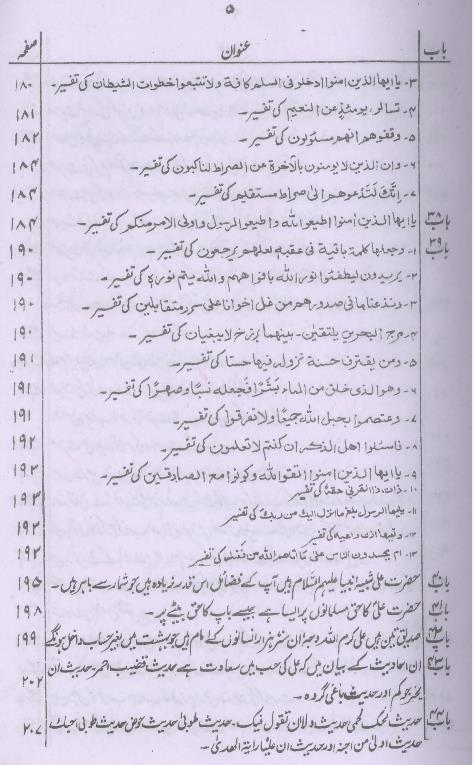 ۵
باب عنوان صفحہ
۳۔ یا ایہا الذین امنوا ادخلو فی السلم کافۃ ولا تتبعوا خطوات الشیطان کی تفسیر۔ ۱۸۰
۴۔ تسالن یومئذ عن النعیم کی تفسیر۔ ۱۸۱
۵۔ وقفوھم انھم مسئولون کی تفسیر۔ ۱۸۲
۶۔ وان الذین لا یومنون بالآخرۃ عن الصراط لناکبون کی تفسیر۔ ۱۸۴
۷۔ انک لتدعوھم الیٰ صراط مستقیم کی تفسیر۔ ۱۸۴
باب ۳۸ یا ایہا الذین امنوا اطیعو اللہ واطیعوا الرسول واولی الامر منکم کی تفسیر۔ ۱۸۴
باب ۳۹ ۱۔ وجعلھا کلمۃ باقیۃ فی عقبہ لعلھم یرجعون کی تفسیر۔ ۱۹۰
۲۔ یریدون لیطفئوا نور اللہ بافواھھم واللہ یتم نورہ کی تفسیر۔ ۱۹۰
۳۔ ونذعنا ما فی صدورھم من غل اخوانا علی سرر متقابلین کی تفسیر۔ ۱۹۰
۴۔ مرج البحرین یلتقین۔ بینھما برزخ لا یبغیان کی تفسیر۔ ۱۹۰
۵۔ ومن یقترف حسنۃ نزد لہ فیھا حسنا کی تفسیر۔ ۱۹۱
۶۔ وھو الذی خلق من الماء بشرًا فجعلہ نسبًا وصھرًا کی تفسیر۔ ۱۹۱
۷۔ وعتصموا بحبل اللہ جمیعًا ولا تفرقوا کی تفسیر۔ ۱۹۱
۸۔ فاسئلوا اھل الذکر ان کنتم لا تعلمون کی تفسیر۔ ۱۹۲
۹۔ یا ایہا الذین امنوا اتقو اللہ وکونوا مع الصادقین کی تفسیر۔ ۱۹۲
۱۰۔ وات ذا القربیٰ حقہ کی تفسیر ۱۹۳
۱۱۔ یایھا الرسول بلغ ما انزل الیک من ربک کی تفسیر
۱۲۔ وتعیھا اذن واعیہ کی تفسیر ۱۹۲
۱۳۔ ام یحسدون الناس علیٰ ما اتاھم اللہ من فضلہ کی تفسیر ۱۹۲
باب ۴۰ حضرت علی شبیہ انبیا علیہم السلام ہیں آپ کے فضائل اس قدر زیادہ ہیں جو شمار سے باہر ہیں۔ ۱۹۵
باب ۴۱ حضرت علی کا حق مسلمانوں پر ایسا ہے جیسے باپ کا حق بیٹے پر۔ ۱۹۸
باب ۴۲ صدیق تین ہیں علی کرم اللہ وجہہ ان ستر ہزار انسانوں کے امام ہیں جو بہشت میں بغیر حساب داخل ہونگے ۱۹۹
باب ۴۳ ان احادیث کے بیان میں کہ علی کی حب میں سعادت ہے حدیث قضیب احمر۔ حدیث ان
یخبر کم اور حدیث باغی گروہ۔ ۲۰۲
باب ۴۴ حدیث لحمک لحمی حدیث ولا ان تقول فیک۔ حدیث طوبیٰ حدیث حوض حدیث طوبیٰ احبک ۲۰۷
حدیث اولیٰ من اور حدیث ان علیًا رایۃ الھدیٰ۔